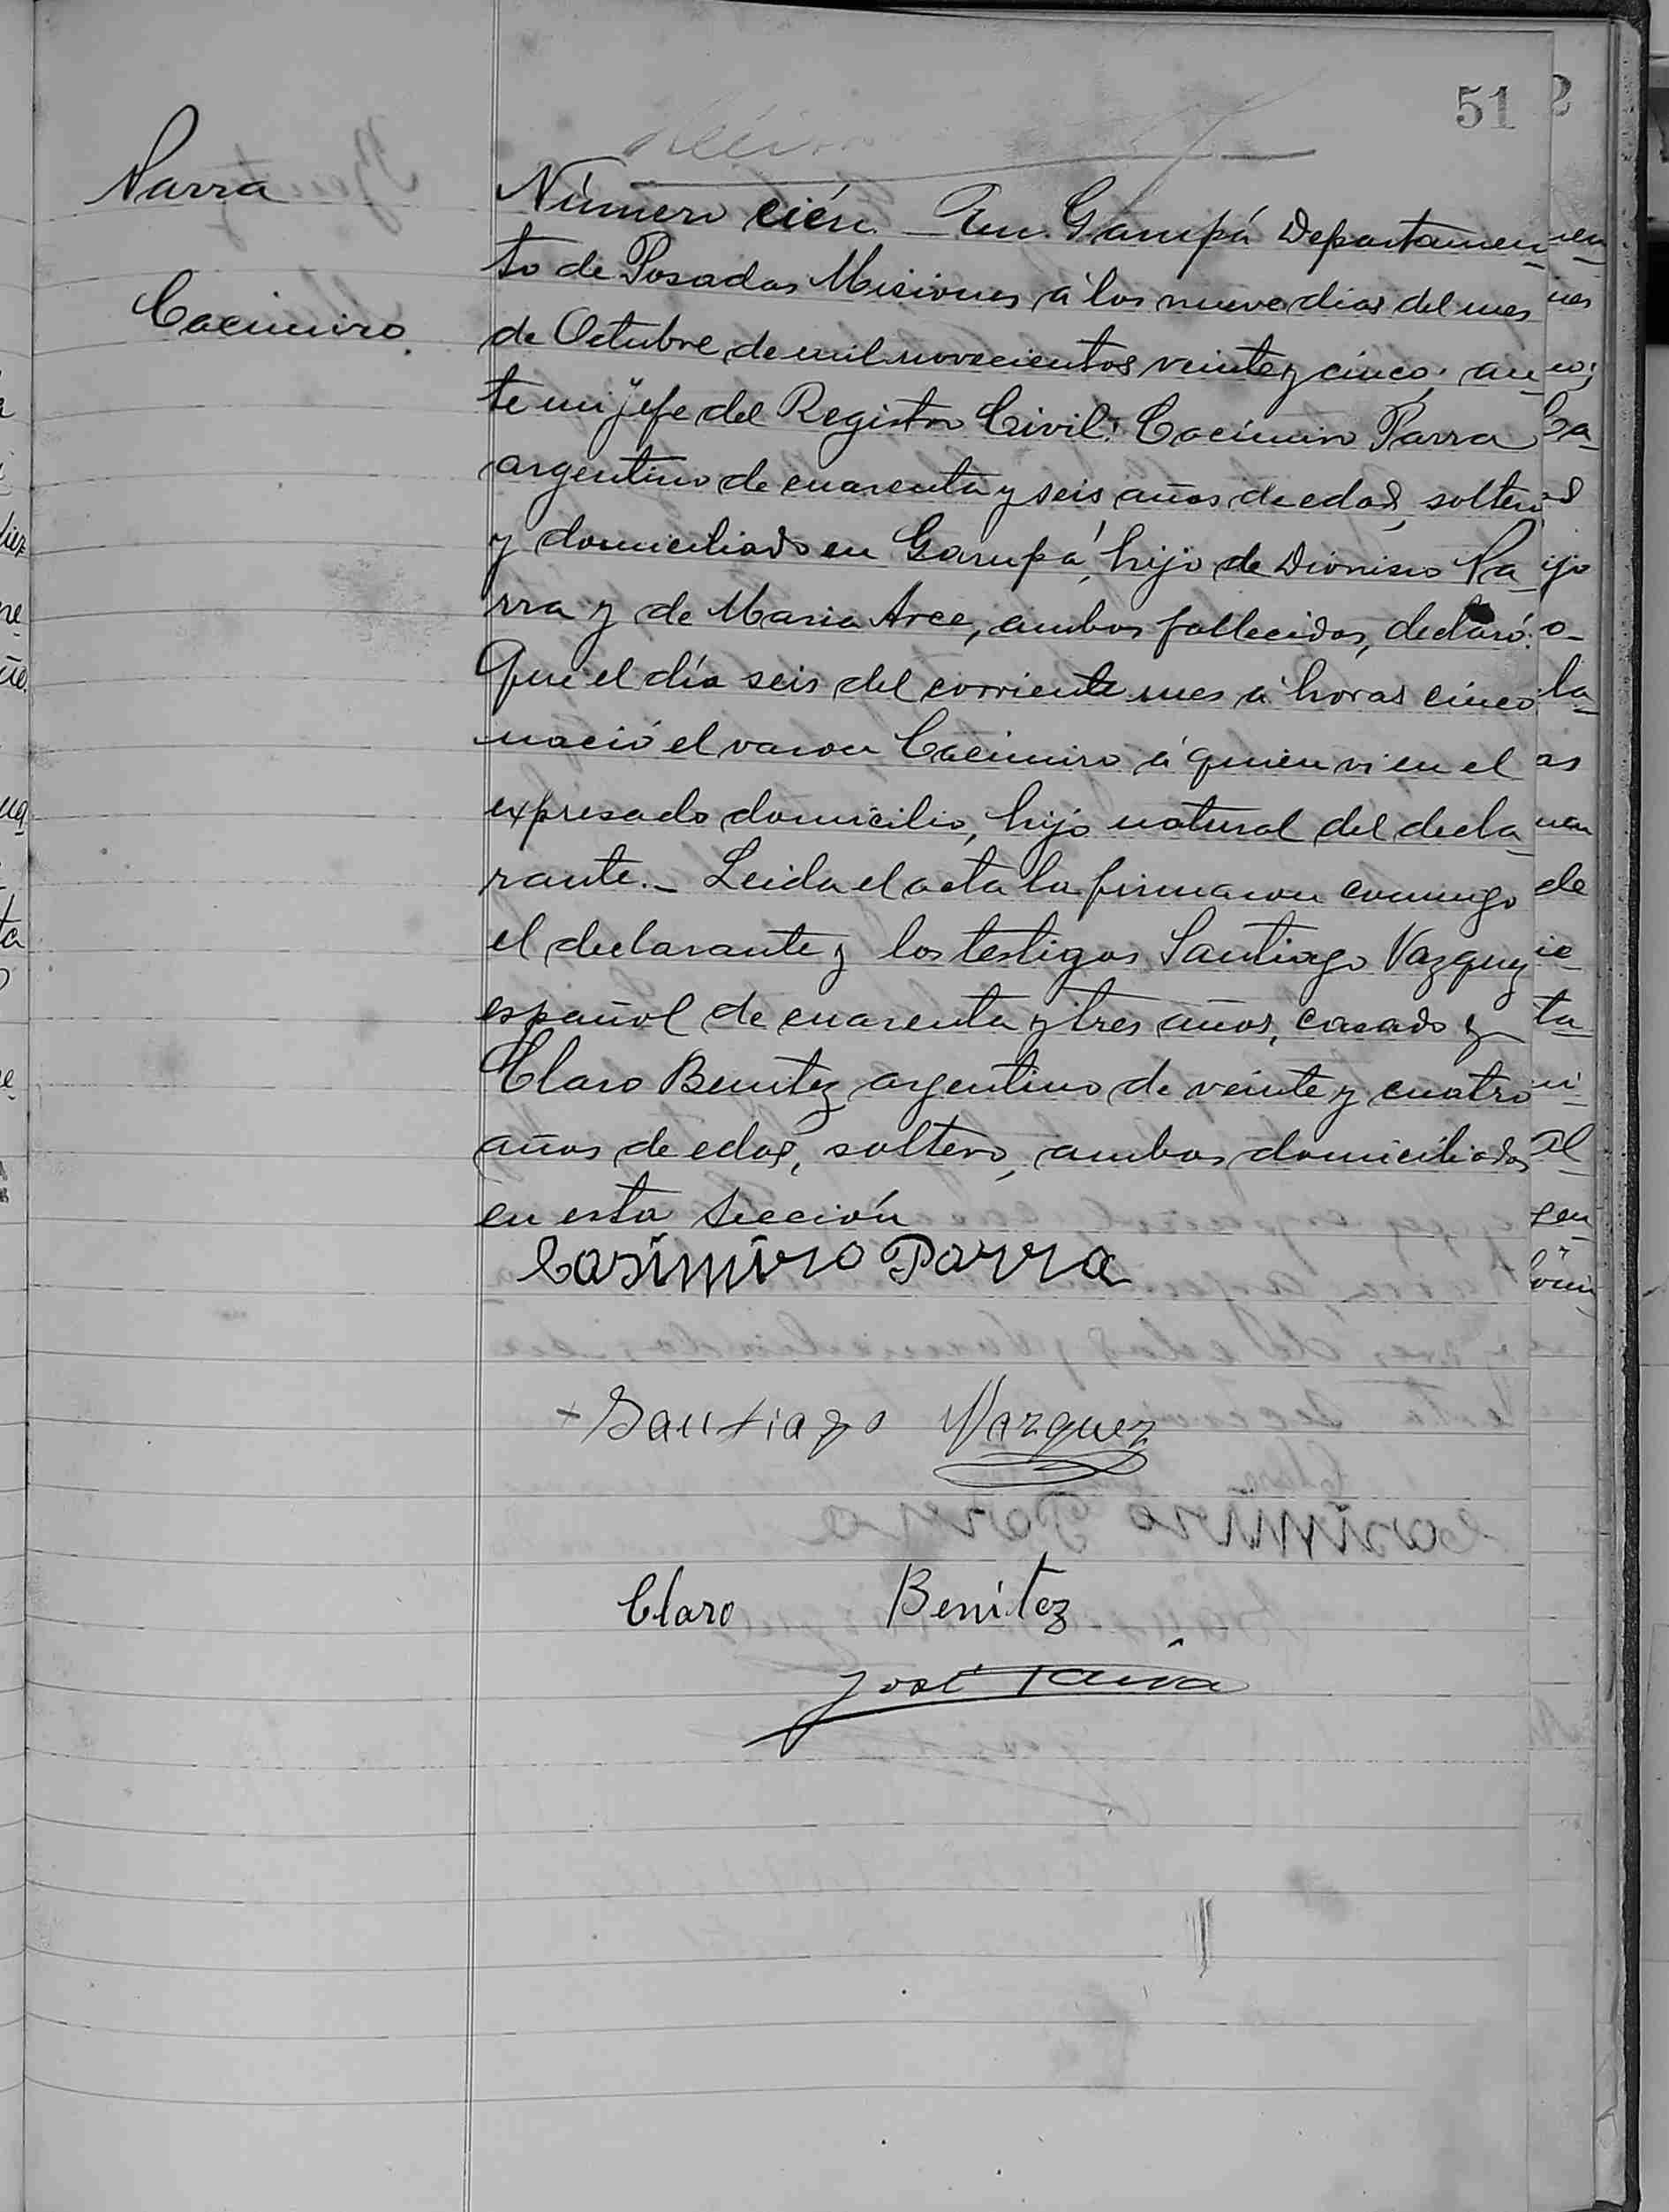 51
Parra
Casimiro
Número cién. – En Garupá Departamen-
to de Posadas Misiones á los nueve dias del mes
de Octubre de mil novecientos veinte y cinco; an-
te mi jefe del Registro Civil: Casimiro Parra
argentino de cuarenta y seis años de edad, soltero
y domiciliado en Garupá, hijo de Dionisio Pa-
rra y de Maria Arce, ambos fallecidos, declaró:
Que el día seis del corriente mes á horas cinco
nació el varon Casimiro á quien vi en el
expresado domicilio, hijo natural del decla-
rante. – Leida el acta la firmaron conmigo
el declarante y los testigos Santiago Vazquez
español de cuarenta y tres años, casado y
Claro Benitez argentino de veinte y cuatro
años de edad, soltero, ambos domiciliados
en esta Sección
Casimiro Parra
+ Santiago Vazquez
Claro Benitez
José Paiva